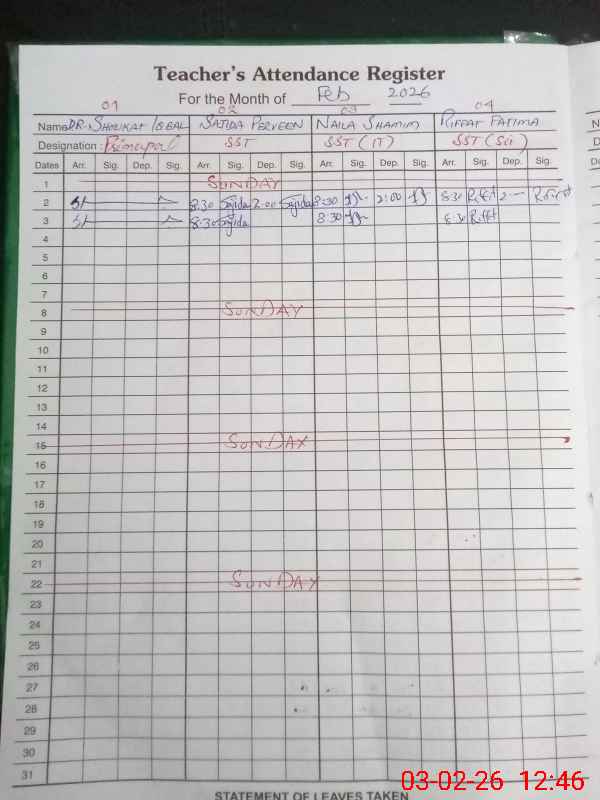 Teacher's Attendance Register
For the Month of Feb 2026
01 02 03 04
Name DR. SHOUKAT IQBAL SAJIDA PERVEEN NAILA SHAMIM RIFFAT FATIMA
Designation : Principal SST SST (IT) SST (Sci)
Dates Arr. Sig. Dep. Sig. Arr. Sig. Dep. Sig. Arr. Sig. Dep. Sig. Arr. Sig. Dep. Sig.
1 SUNDAY
2 8:30 Sajida 2:00 Sajida 8:30 2:00 8:30 Riffat 2 Riffat
3 8:30 Sajida 8:30 8:30 Riffat
4
5
6
7
8 SUNDAY
9
10
11
12
13
14
15 SUNDAY
16
17
18
19
20
21
22 SUNDAY
23
24
25
26
27
28
29
30
31
STATEMENT OF LEAVES TAKEN
03-02-26 12:46